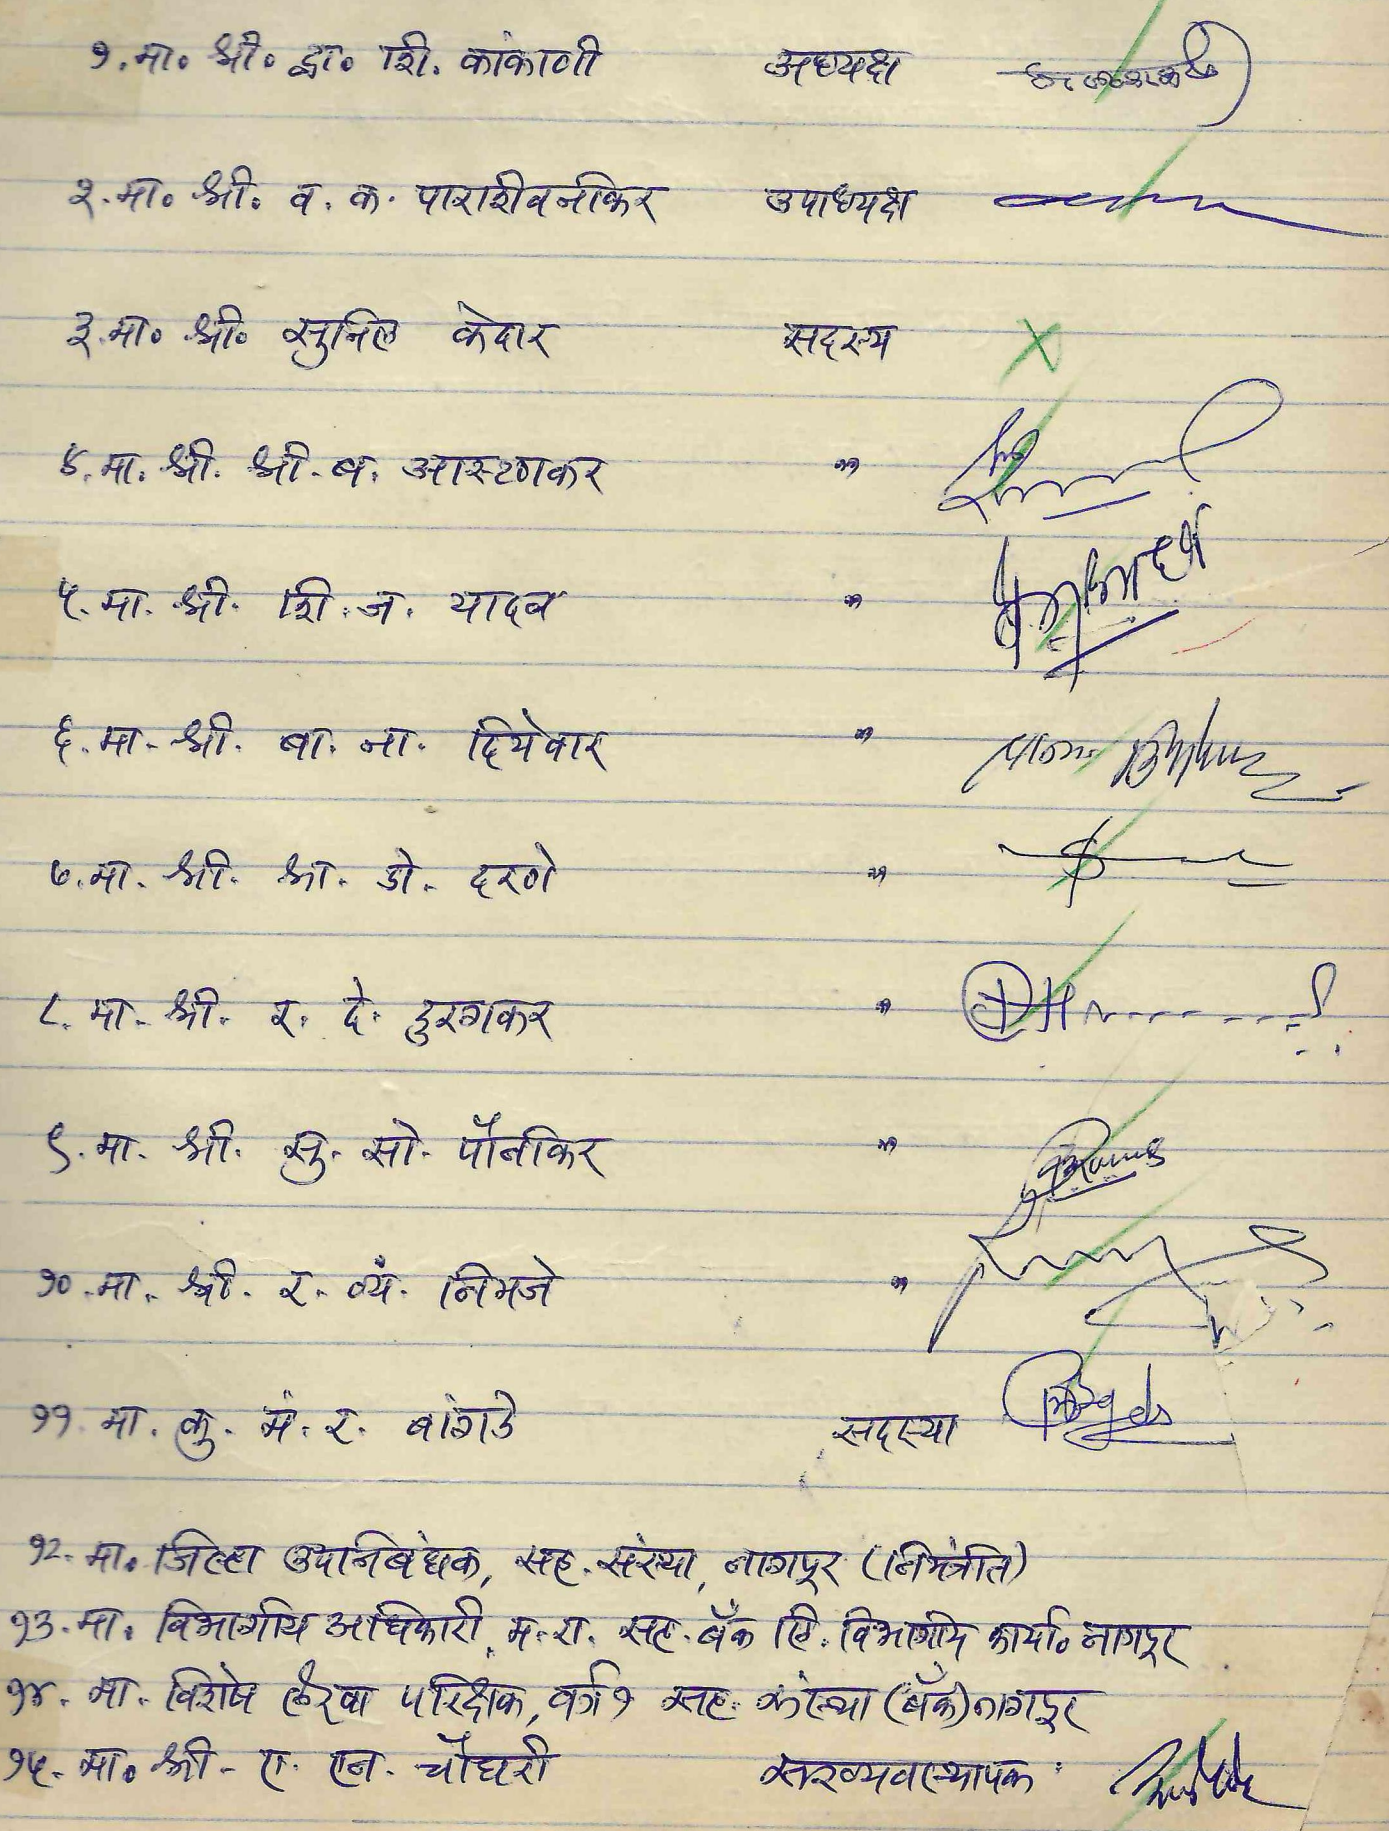 १. मा० श्री० द्वा० शि. कांकाणी अध्यक्ष
२. मा० श्री. व. क. पाराशीवनीकर उपाध्यक्ष
३. मा० श्री० सुनिल केदार सदस्य
४. मा. श्री. श्री. ब. आस्टणकर "
५. मा. श्री. शि. ज. यादव "
६. मा. श्री. बा. ना. दियेवार "
७. मा. श्री. श्रा. डो. दरणे "
८. मा. श्री. र. दे. दुरुगकर "
९. मा. श्री. सु. सो. पौनीकर "
१०. मा. श्री. र. व्यं. निमजे "
११. मा. कु. मं. र. बांगडे सदस्या
१२. मा. जिल्हा उपनिबंधक, सह. संस्था, नागपूर (निमंत्रीत)
१३. मा. विभागीय अधिकारी, म. रा. सह. बँक लि. विभागीय कार्या० नागपूर
१४. मा. विशेष लेखा परिक्षक, वर्ग १ सह. संस्था (बँक) नागपूर
१५. मा० श्री. ए. एन. चौधरी सरव्यवस्थापक